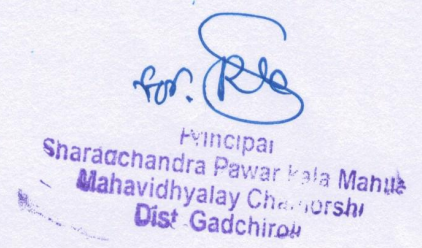 for.
Principal
Sharadchandra Pawar Kala Mahila
Mahavidhyalay Chamorshi
Dist Gadchiroli